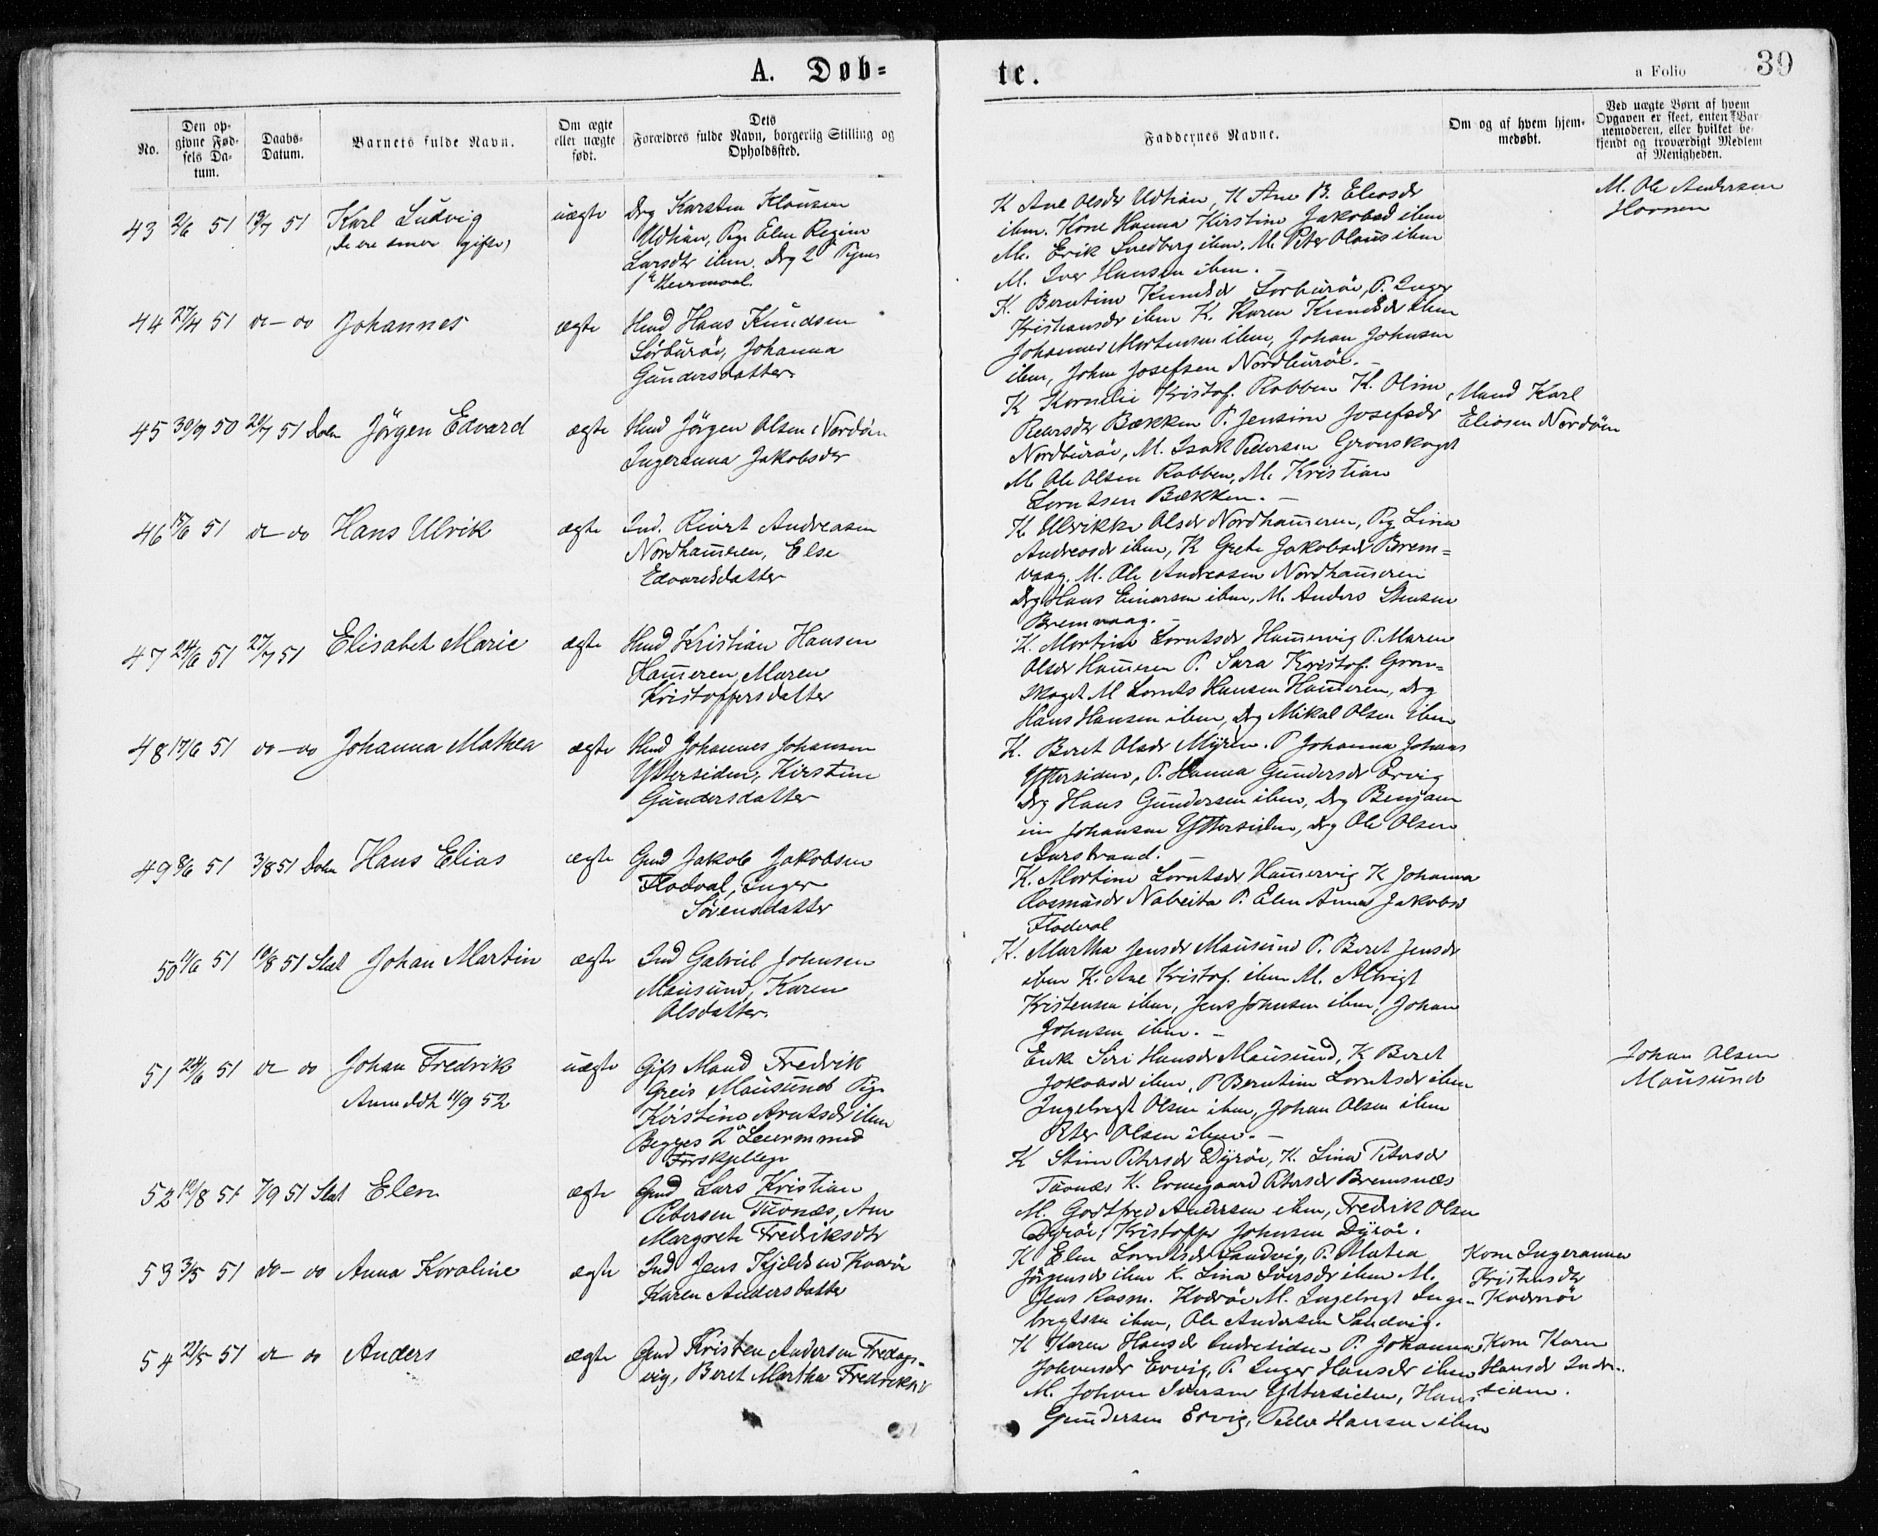 A. Døb=
te.
a Folio 39
No.
Den op-
givne Fød-
sels Da-
tum.
Daabs-
Datum.
Barnets fulde Navn.
Om ægte
eller uægte
født.
Dets
Forældres fulde Navn, borgerlig Stilling og
Opholdssted.
Faddernes Navne.
Om og af hvem hjem-
medøbt.
Ved uægte Børn af hvem
Opgaven er skeet, enten Bar-
nemoderen, eller hvilket be-
kjendt og troværdigt Medlem
af Menigheden.
43 2/6 51 19/7 51 Karl Ludvig uægte Drg Karsten Klausen
(de ere senere gifte)
Udtian, Pige Elen Regine
Larsdtr ibm. Drg 2 Pigens
1ste Leiermaal.
K Ane Olsdr Udtian, K Ane B. Eliasdr
ibm. Kone Hanna Kirstine Jakobsd ibm
M. Erik Svedberg ibm. M. Peter Olaus ibm
M. Iver Hansen ibm. -
M. Ole Andersen
Hornen
44 27/4 51 do - do Johannes ægte Hmd Hans Knudsen
Sørburøi, Johanna
Gundersdatter.
K. Berntine Knudsdr Sørburøi, P. Inger
Kristiansdr ibm K. Karen Knudsdr ibm
Johannes Mortensen ibm, Johan Johnsen
ibm, John Josefsen Nordburøi. -
45 30/9 50 20/7 51 Dolm Jørgen Edvard ægte Hmd Jørgen Olsen Nordøen
Ingeranna Jakobsdr
K Kornelie Kristof. Rabben K. Oline
Bækken P. Jensine Josefsdr
Nordburøi, M. Isak Pedersen Grønskaget
M. Ole Olsen Rabben, M. Kristian
Lorntsen Bækken. -
Mand Karl
Eliasen Nordøen
46 15/6 51 do - do Hans Ulrik ægte Ind. Rivert Andreasen
Nordhammeren, Else
Edvardsdatter
K. Ulrikke Olsdr Nordhammeren, Pig Lina
Andreasdr ibm, K Grete Jakobsdr Brem=
vaag. M. Ole Andreasen Nordhammeren
Drg Hans Einarsen ibm, M. Anders
Bremvaag. -
47 24/6 51 27/7 51 Elisabet Marie ægte Hmd Kristian Hansen
Hammeren, Maren
Kristoffersdatter
K. Mortine Lorntsdr Hammervig P. Maren
Olsdr Hammeren P. Sara Kristof. Grøn=
skaget M Lornts Hansen Hammeren, Drg
Hans Hansen ibm, Drg Mikal Olsen ibm
48 17/6 51 do - do Johanna Mathea ægte Hmd Johannes Johansen
Yttersiden, Kirstine
Gundersdatter
K. Beret Olsdr Myren. P Johanna Johans
Yttersiden, P. Hanna Gundersdr Ervig
Drg Hans Gundersen ibm, Drg Benjam
in Johansen Yttersiden, Drg Ole Olsen
Aurstrand. -
49 8/6 51 3/8 51 Dolm Hans Elias ægte Gmd Jakob Jakobsen
Flodval, Inger
Sørensdatter
K. Mortine Lorntsdr Hammervig K Johanna
Rasmusdr Nabeita P. Elen Anna Jakobsd
Flodval
50 11/6 51 10/8 51 Slet Johan Martin ægte Ind Gabriel Johnsen
Mausund, Karen
Olsdatter.
K. Martha Jensdr Mausund P. Beret Jensdr
ibm K. Ane Kristof. ibm M. Albrigt
Kristensen ibm, Jens Johnsen ibm, Johan
Johnsen ibm. -
51 24/6 51 do do Johan Fredrik uægte Gift Mand Fredrik
Anmeldt 11/9 52
Greis Mausund Pige
Kirstine Arntsdr ibm
Begges 2 Leierm med
Forskjellige
Enke Siri Hansdr Mausund, K Beret
Jakobsdr ibm, P Berntine Lorntsdr ibm
Ingebregt Olsen ibm, Johan Olsen ibm
Peter Olsen ibm. -
Johan Olsen
Mausund
52 12/8 51 7/9 51 Slet Elen ægte Gmd Lars Kristian
Petersen Tuvnæs, Ane
Margrete Fredriksdtr
K Stine Petersdr Dyrøi, K. Lina Petersdr
Tuvnæs K. Ermegaard Petersdr Bremsnæs
M. Godtfred Andersen ibm, Fredrik Olsen
Dyrøi, Kristoffer Johnsen Dyrøi.
53 3/5 51 do - do Anna Karoline ægte Ind Jens Kjeldsen Kvarøi
Karen Andersdatter
K Elen Lorntsdr Sandvig, P. Matea
Jørgensdr ibm K. Lina Iversdr ibm M.
Jens Rasm. Kvarøi M. Ingebregt Inge-
bregtsen ibm, Ole Andersen Sandvig.
Kone Ingeranna
Kristensdtr
54 23/5 51 do - do Anders ægte Gmd Kristen Andersen Fredags-
vig, Beret Martha Fredriksd
K Karen Hansdr Inderside P. Johanna
Johansdr Ervig, P. Inger Hansdr ibm
M. Johan Iversen Yttersiden, Hans
Gundersen Ervig, Peder Hansen ibm
Kone Karen
Hansdr Inder-
siden.